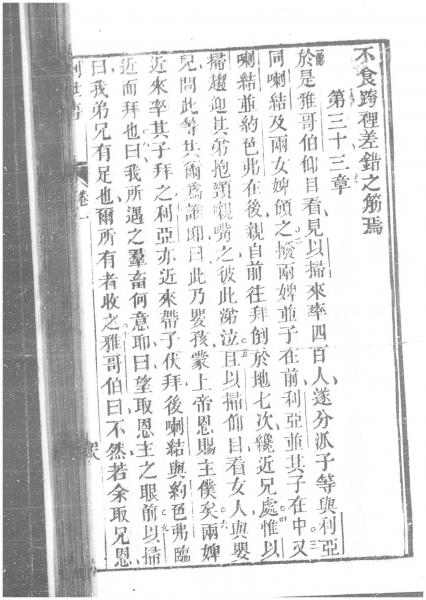 不食跨裡差錯之筋焉
第三十三章
於是雅哥伯仰目看見以掃來率四百人遂分派子等與利亞
同喇結及兩女婢頒之撥兩婢並子在前利亞並其子在中又
喇結並約色弗在後親自前往拜倒於地七次纔近兄處惟以
掃趨迎其弟抱頸親嘴之彼此涕泣且以掃仰目看女人與嬰
兒問此等共爾為誰耶曰此乃嬰孩蒙上帝恩賜主僕矣兩婢
近來率其子拜之利亞亦近來帶子伏拜後喇結與約色弗臨
近而拜也曰我所遇之羣畜何意耶曰望取恩主之眼前以掃
曰我弟兄有足也爾所有者收之雅哥伯曰不然若余取兄恩
卷一